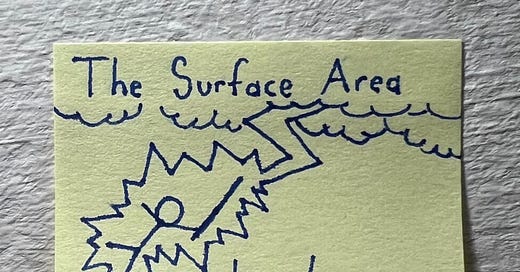 The Surface Area